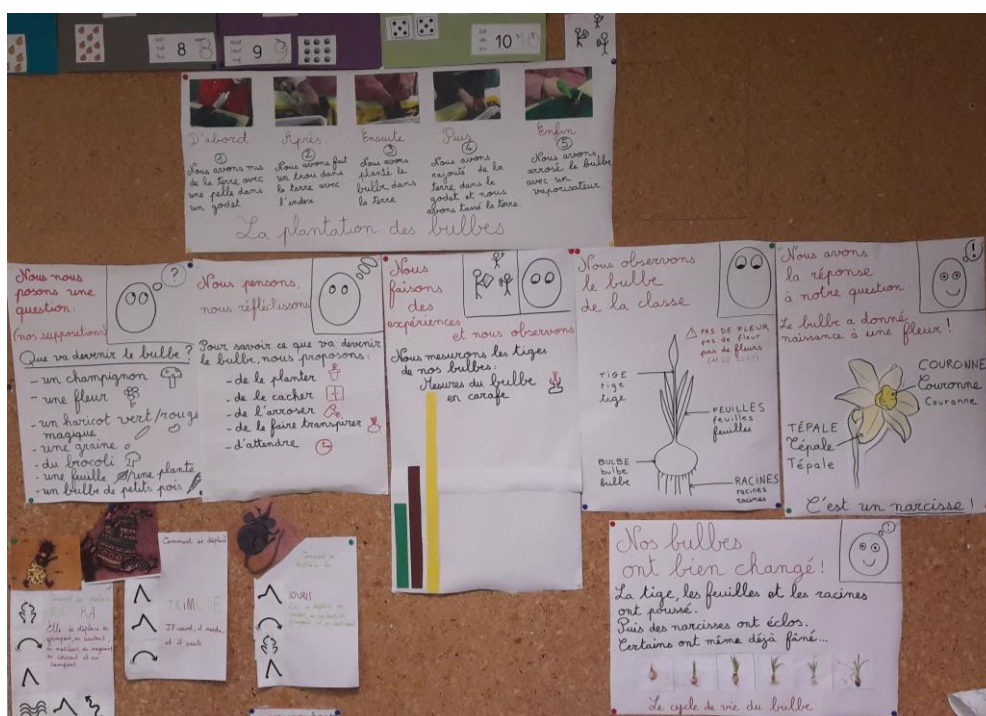 8
9
10
D'abord
①
Nous avons mis
de la terre avec
une pelle dans
un godet
Après
②
Nous avons fait
un trou dans
la terre avec
l'index
Ensuite
③
Nous avons
planté le
bulbe dans
la terre
Puis
④
Nous avons
rajouté de la
terre dans le
godet et nous
avons tassé la terre.
Enfin
⑤
Nous avons
arrosé le bulbe
avec un
vaporisateur.
La plantation des bulbes
Nous nous
posons une
question.
(nos suppositions)
?
Que va devenir le bulbe ?
- un champignon
- une fleur
- un haricot vert/rouge
magique
- une graine
- du brocoli
- une feuille /une plante
- un bulbe de petits pois
Nous pensons,
nous réfléchissons
Pour savoir ce que va devenir
le bulbe, nous proposons :
- de le planter
- de le cacher
- de l'arroser
- de le faire transpirer
- d'attendre
Nous
faisons
des
expériences
et nous observons
Nous mesurons les tiges
de nos bulbes :
Mesures du bulbe
en carafe
Nous observons
le bulbe
de la classe
PAS DE FLEUR
pas de fleur
pas de fleurs
TIGE
tige
tige
FEUILLES
feuilles
feuilles
BULBE
bulbe
bulbe
RACINES
racines
racines
Nous avons
la réponse
à notre question.
!
Le bulbe a donné
naissance à une fleur !
COURONNE
Couronne
Couronne
TÉPALE
Tépale
Tépale
C'est un narcisse !
Nos bulbes
ont bien changé !
!
La tige, les feuilles et les racines
ont poussé.
Puis des narcisses ont éclos.
Certains ont même déjà fâné...
Le cycle de vie du bulbe
Comment se déplace
Elle se déplace en
Comment se déplace
Il court, il marche,
et il saute
Comment se
déplace la
SOURIS